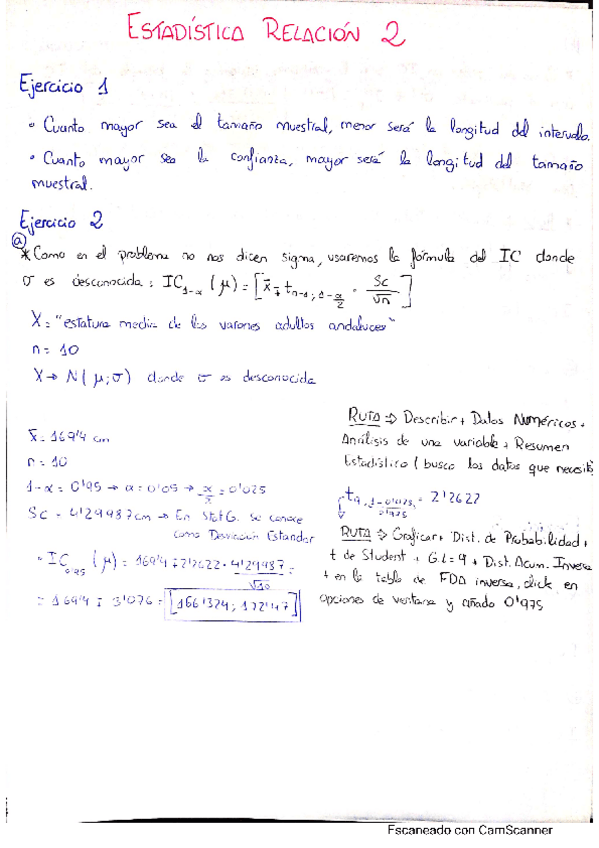 ESTADÍSTICA RELACIÓN 2
Ejercicio 1
• Cuanto mayor sea el tamaño muestral, menor será la longitud del intervalo.
• Cuanto mayor sea la confianza, mayor será la longitud del tamaño
muestral.
Ejercicio 2
a)
* Como en el problema no nos dicen sigma, usaremos la fórmula del IC donde
σ es desconocida: IC₁₋α (μ) = [x̄ ∓ tₙ₋₁; ₁₋α/2 · Sc/√n]
X = "estatura media de los varones adultos andaluces"
n = 10
X → N(μ;σ) donde σ es desconocida
x̄ = 169'4 cm
n = 10
1-α = 0'95 → α = 0'05 → α/2 = 0'025
Sc = 4'29987cm → En StatG. se conoce
como Desviación Estandar
• IC₀'₉₅ (μ) = 169'4 ∓ 2'2622 · 4'29987/√10 =
= 169'4 ∓ 3'076 = [166'324; 172'47]
RUTA ⇒ Describir + Datos Numéricos +
Análisis de una variable + Resumen
Estadístico (busco los datos que necesito
t₉, 1-0'025, = 2'2622
0'975
RUTA ⇒ Graficar + Dist. de Probabilidad +
t de Student + G.L = 9 + Dist. Acum. Inversa
+ en la tabla de FDA inversa, click en
opciones de ventana y añado 0'975
Escaneado con CamScanner